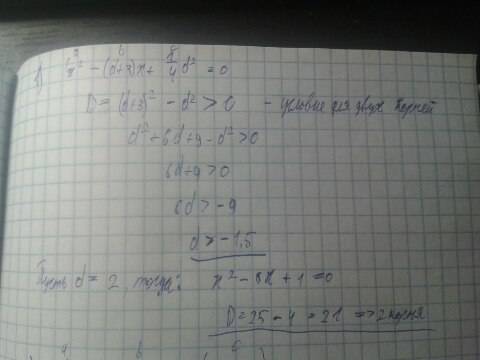 1) x² - (d+3)x + 1/4 d² = 0
D = (d+3)² - d² > 0 - условие для двух корней
d² + 6d + 9 - d² > 0
6d + 9 > 0
6d > -9
d > -1,5
Пусть d = 2, тогда: x² - 5x + 1 = 0
D = 25 - 4 = 21 => 2 корня